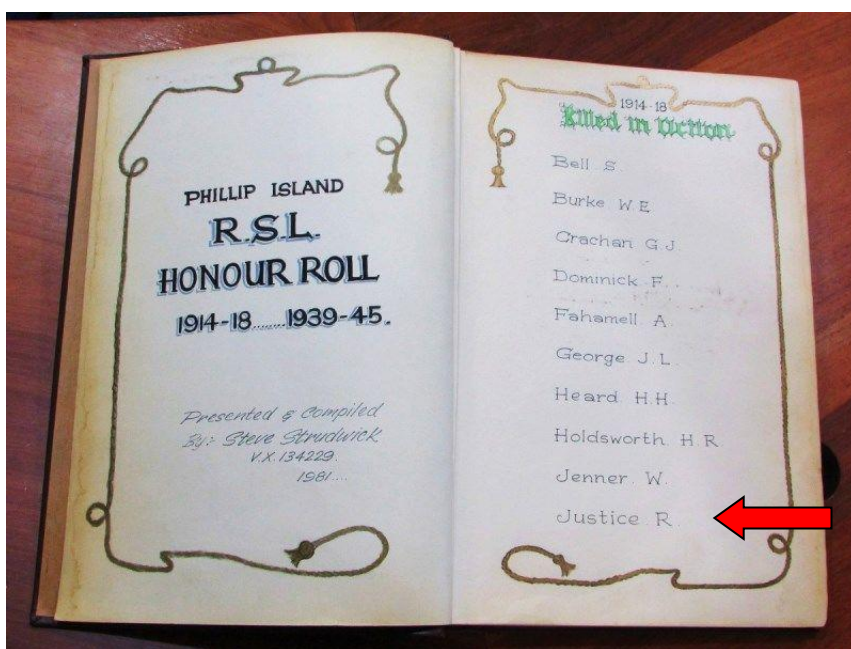 PHILLIP ISLAND
R.S.L.
HONOUR ROLL
1914-18........1939-45.
Presented & Compiled
By: Steve Strudwick
V.X. 134229.
1981....
1914-18
Killed in Action
Bell S.
Burke W.E
Crachan G.J
Dominick F.
Fahamell A
George J.L.
Heard H.H.
Holdsworth H.R.
Jenner W.
Justice R.